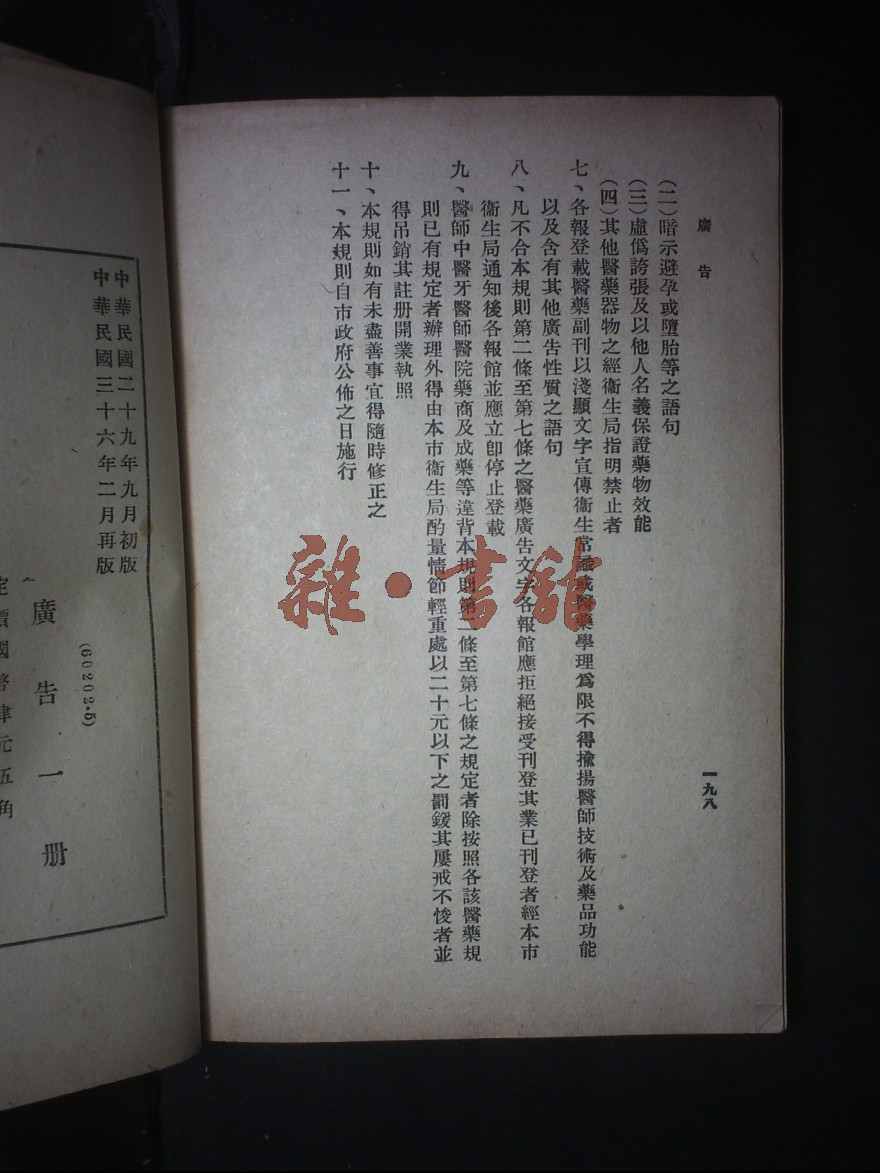 廣告
一九八
(二)暗示避孕或墮胎等之語句
(三)虛僞誇張及以他人名義保證藥物效能
(四)其他醫藥器物之經衞生局指明禁止者
七、各報登載醫藥副刊以淺顯文字宣傳衞生常識或醫藥學理爲限不得揄揚醫師技術及藥品功能
以及含有其他廣告性質之語句
八、凡不合本規則第二條至第七條之醫藥廣告文字各報館應拒絕接受刊登其業已刊登者經本市
衞生局通知後各報館並應立卽停止登載
九、醫師中醫牙醫師醫院藥商及成藥等違背本規則第二條至第七條之規定者除按照各該醫藥規
則已有規定者辦理外得由本市衞生局酌量情節輕重處以二十元以下之罰鍰其屢戒不悛者並
得吊銷其註册開業執照
十、本規則如有未盡善事宜得隨時修正之
十一、本規則自市政府公佈之日施行
中華民國二十九年九月初版
中華民國三十六年二月再版
(60202·5)
廣告一册
定價國幣肆元伍角
雜·書館